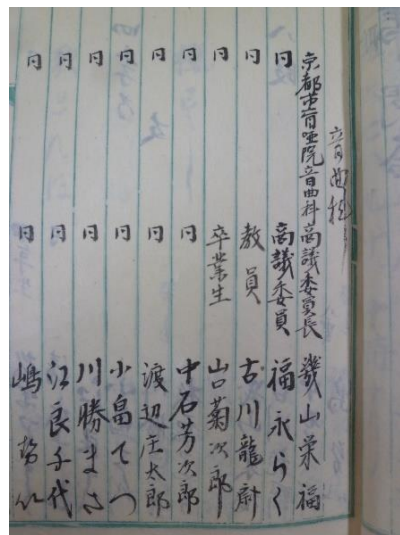 音曲科
京都市盲唖院音曲科商議委員長 幾山栄福
同 商議委員 福永らく
同 教員 古川龍尉
同 卒業生 山口菊次郎
同 同 中石芳次郎
同 同 渡辺庄太郎
同 同 小畠てつ
同 同 川勝まさ
同 同 江良千代
同 同 嶋